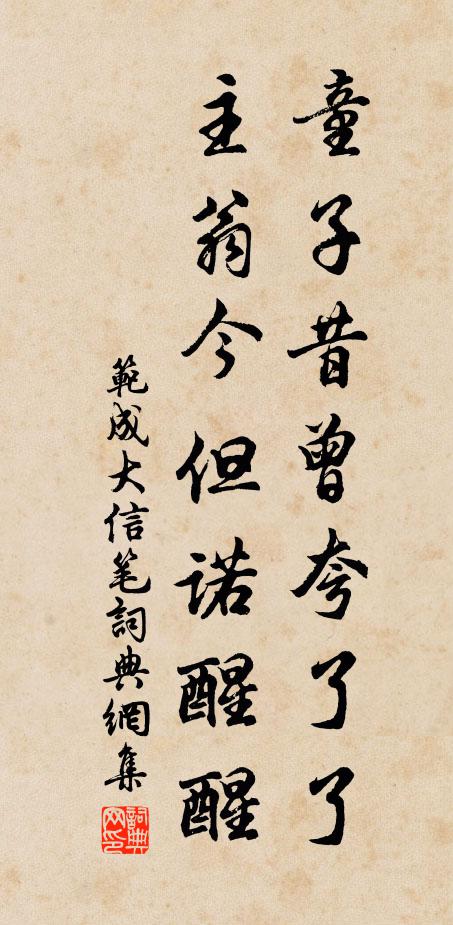 童子昔曾夸了了
主翁今但诺醒醒
範成大信笔詞典網集
詞典网印